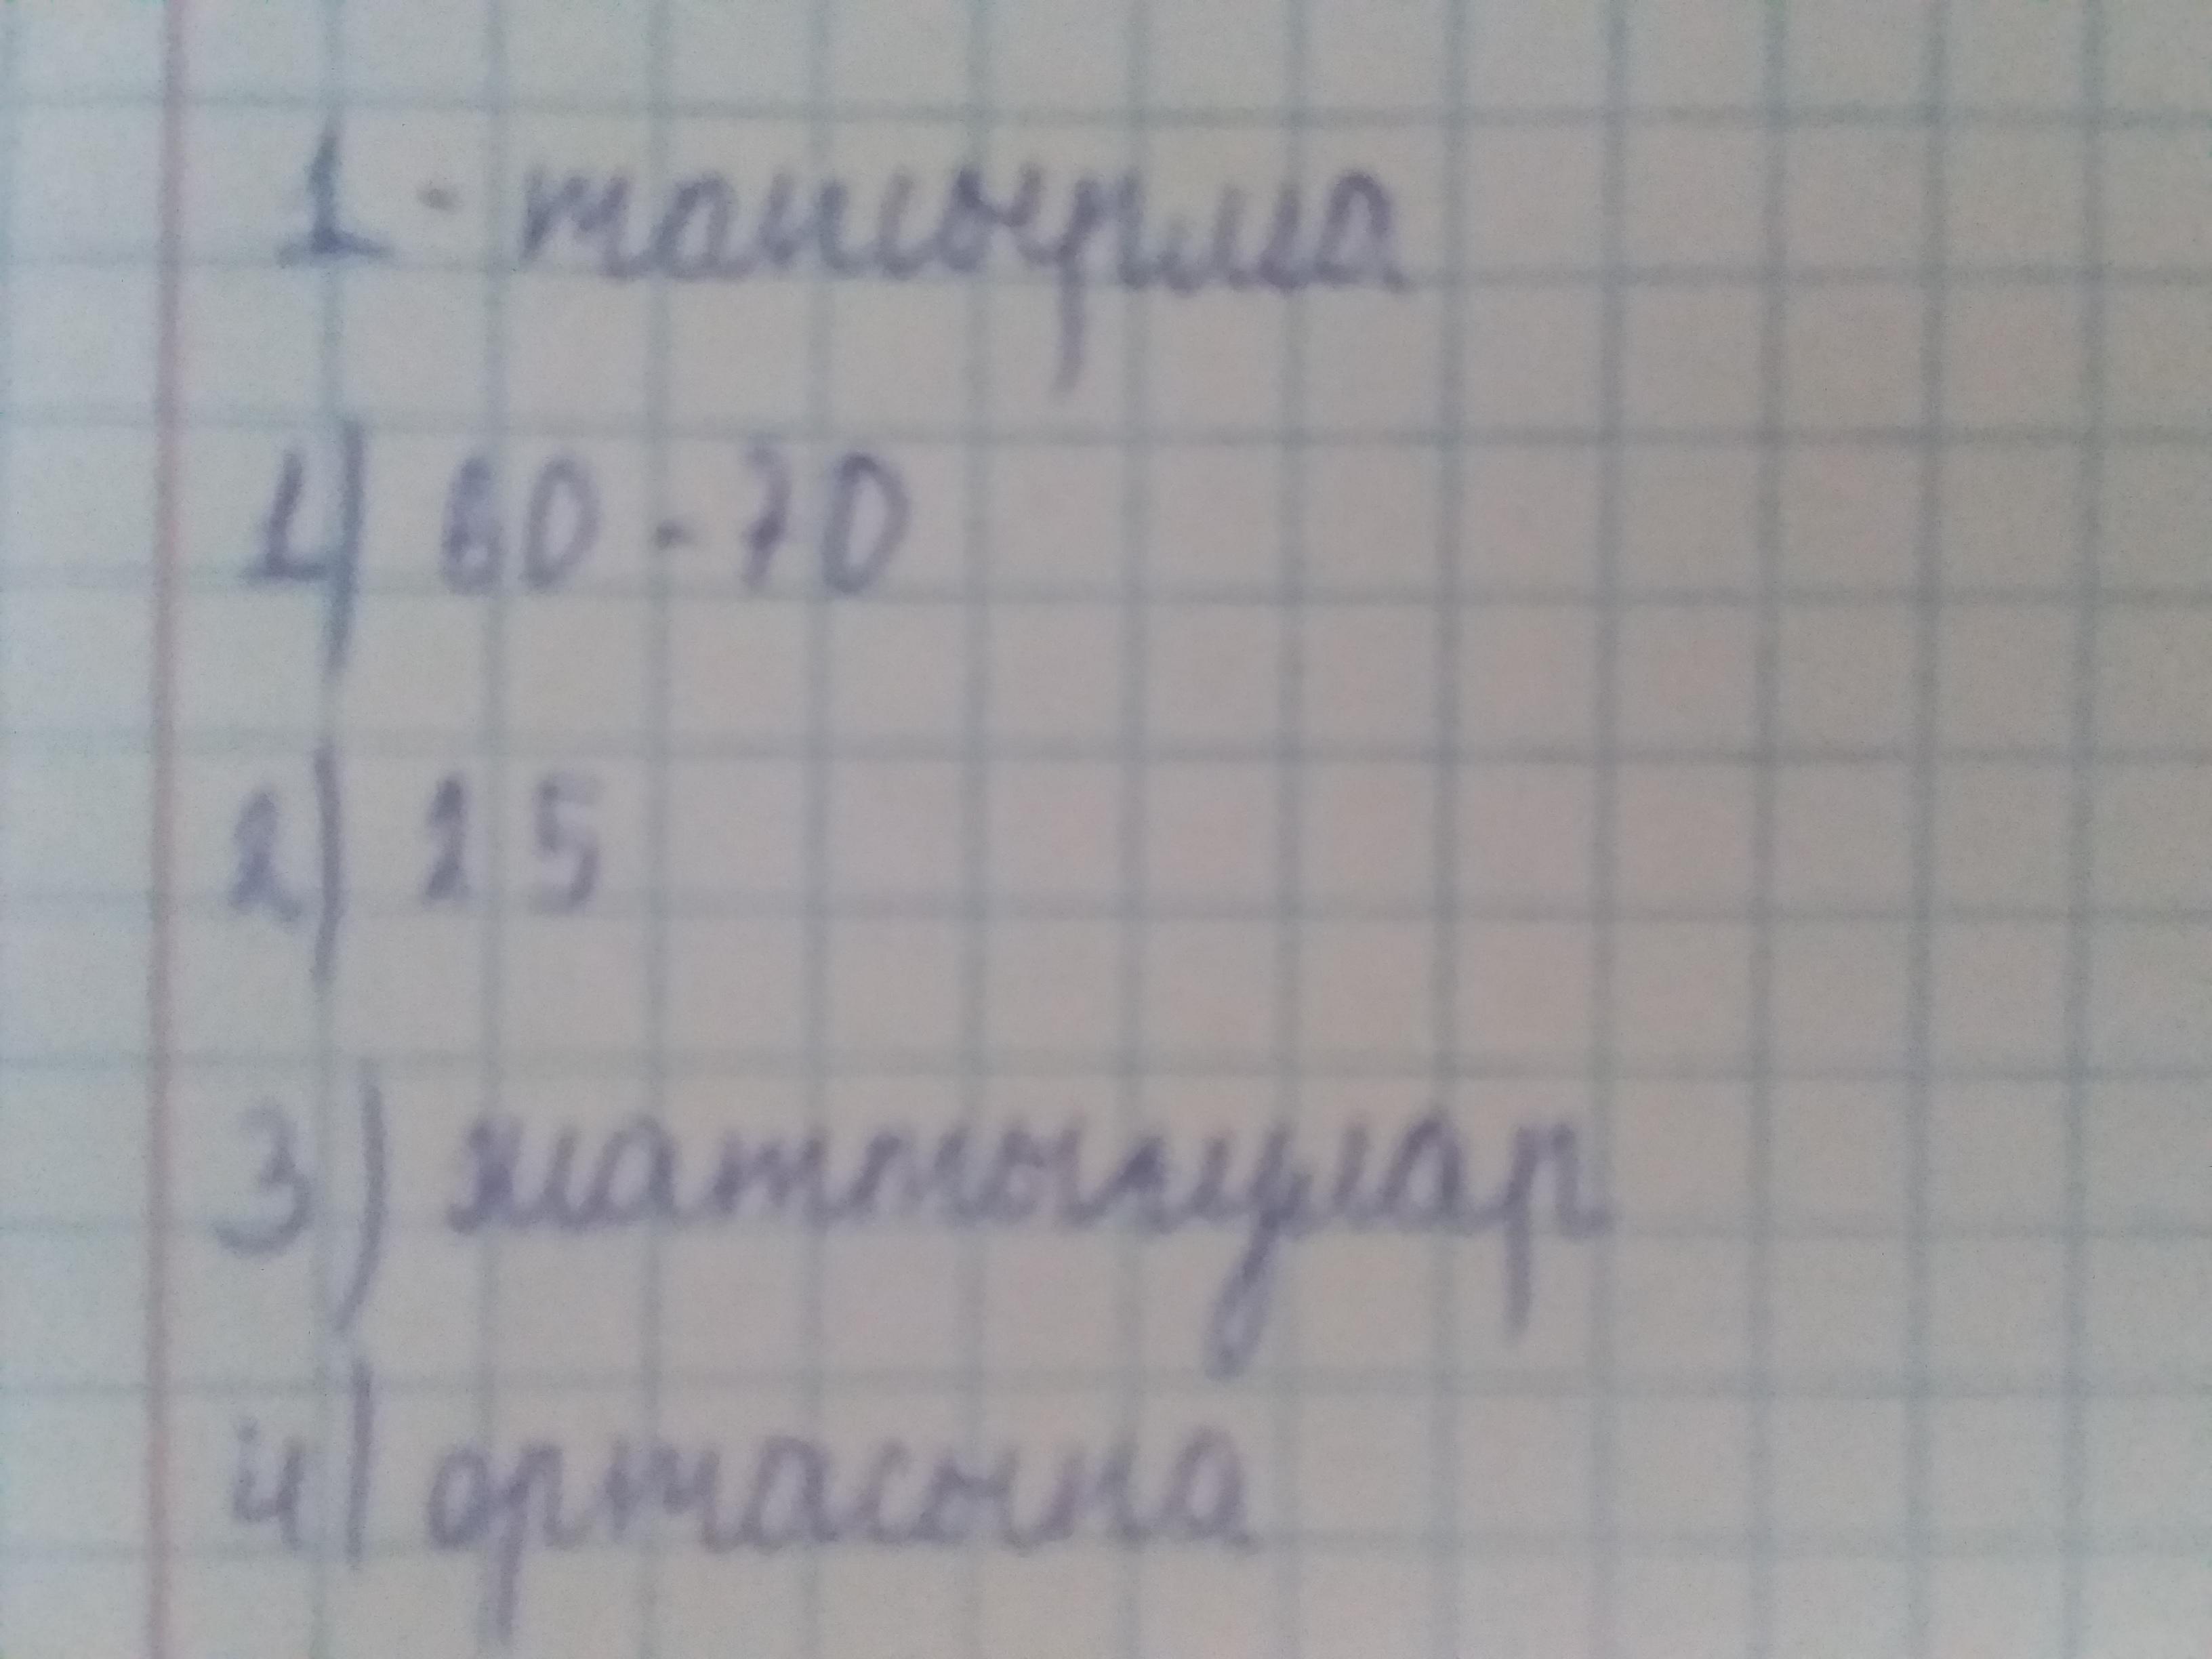 1 - тапсырма
1) 60 - 70
2) 25
3) жаттығулар
4) ортасына